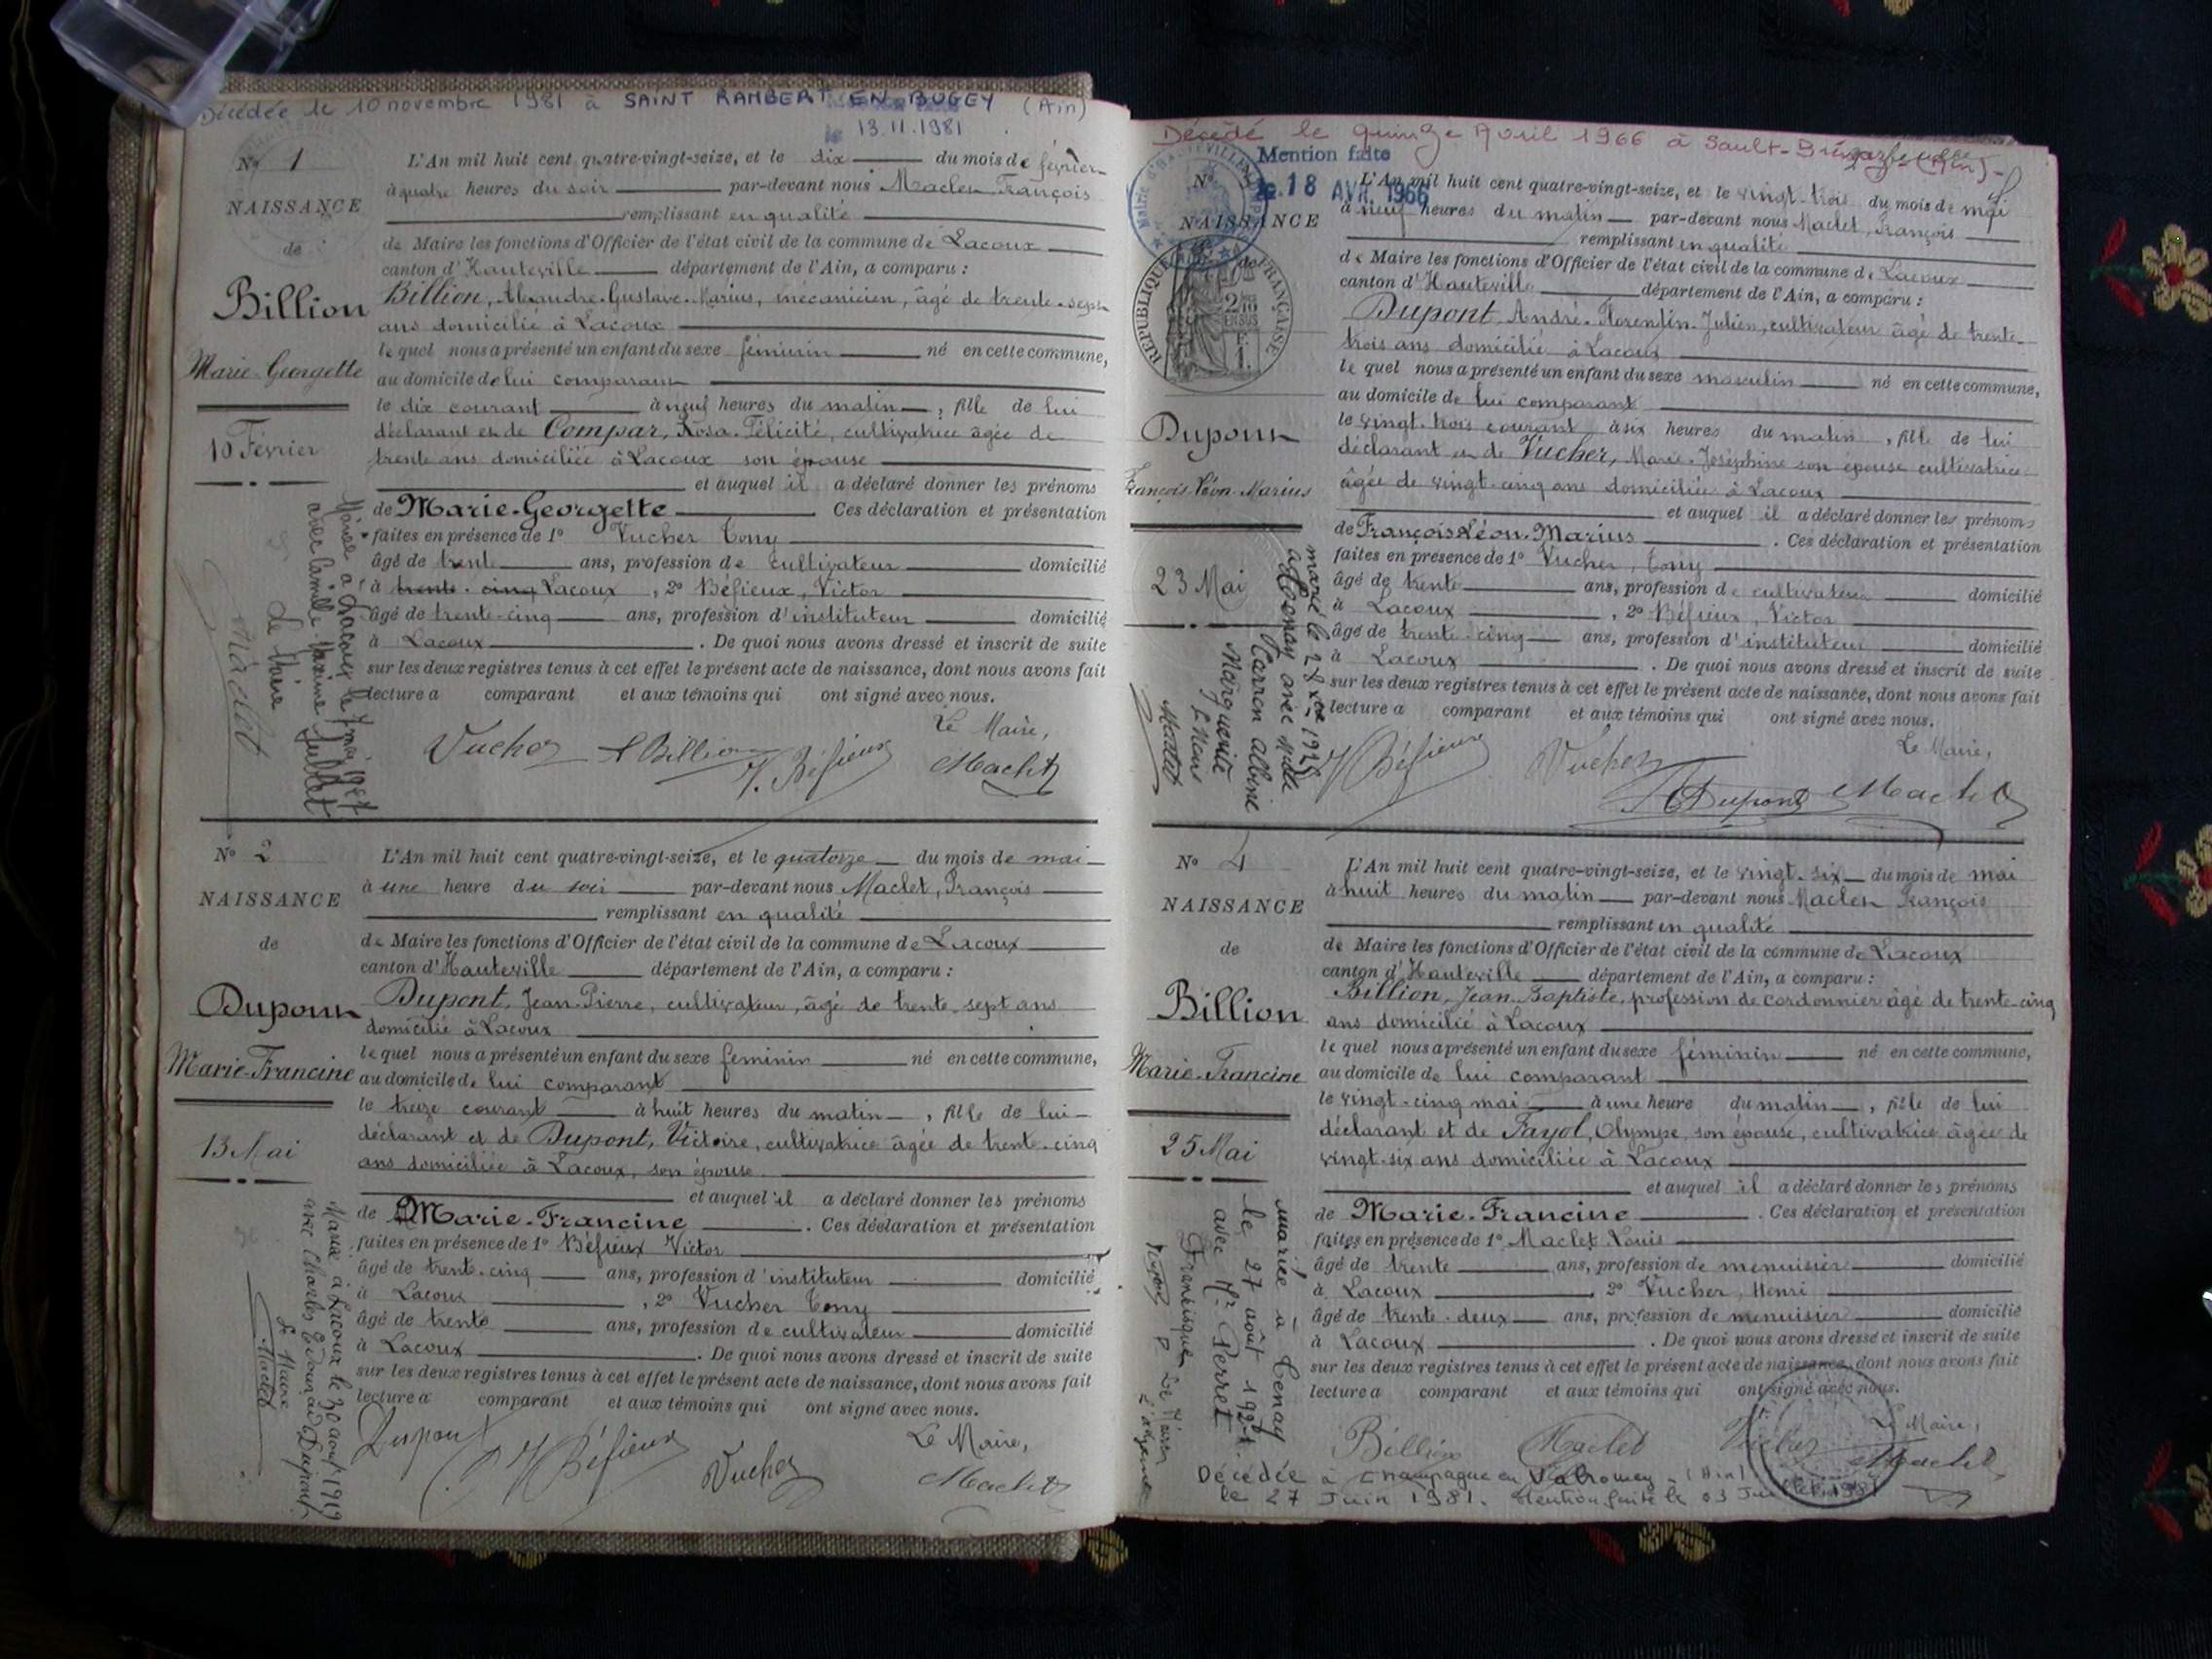 Décédée le 10 novembre 1981 à SAINT RAMBERT EN BUGEY (Ain)
le 13.11.1981
N° 1
NAISSANCE
de
Billion
Marie-Georgette
10 Février
L'An mil huit cent quatre-vingt-seize, et le dix du mois de février
à quatre heures du soir par-devant nous Maclet François
remplissant en qualité
de Maire les fonctions d'Officier de l'état civil de la commune de Lacoux
canton d'Hauteville département de l'Ain, a comparu :
Billion, Alexandre-Gustave-Marius, mécanicien, âgé de trente-sept
ans domicilié à Lacoux
le quel nous a présenté un enfant du sexe féminin né en cette commune,
au domicile de lui comparant
le dix courant à neuf heures du matin, fille de lui
déclarant et de Compar, Rosa-Félicité, cultivatrice âgée de
trente ans domiciliée à Lacoux son épouse
et auquel il a déclaré donner les prénoms
de Marie-Georgette Ces déclaration et présentation
faites en présence de 1° Vucher Tony
âgé de trente ans, profession de cultivateur domicilié
à trente-cinq Lacoux, 2° Béfieux, Victor
âgé de trente-cinq ans, profession d'instituteur domicilié
à Lacoux. De quoi nous avons dressé et inscrit de suite
sur les deux registres tenus à cet effet le présent acte de naissance, dont nous avons fait
lecture a comparant et aux témoins qui ont signé avec nous.
Le Maire,
Vucher A Billion V. Béfieux Maclet
Mariée à Lacoux le 7 mai 1927
avec Camille Maxime Jullet
Le Maire
Maclet
N° 2
NAISSANCE
de
Dupont
Marie-Francine
13 Mai
L'An mil huit cent quatre-vingt-seize, et le quatorze du mois de mai
à une heure du soir par-devant nous Maclet, François
remplissant en qualité
de Maire les fonctions d'Officier de l'état civil de la commune de Lacoux
canton d'Hauteville département de l'Ain, a comparu :
Dupont, Jean-Pierre, cultivateur, âgé de trente-sept ans
domicilié à Lacoux
le quel nous a présenté un enfant du sexe féminin né en cette commune,
au domicile de lui comparant
le treize courant à huit heures du matin, fille de lui
déclarant et de Dupont, Victoire, cultivatrice âgée de trente-cinq
ans domiciliée à Lacoux, son épouse
et auquel il a déclaré donner les prénoms
de Marie-Francine. Ces déclaration et présentation
faites en présence de 1° Béfieux Victor
âgé de trente-cinq ans, profession d'instituteur domicilié
à Lacoux, 2° Vucher Tony
âgé de trente ans, profession de cultivateur domicilié
à Lacoux. De quoi nous avons dressé et inscrit de suite
sur les deux registres tenus à cet effet le présent acte de naissance, dont nous avons fait
lecture a comparant et aux témoins qui ont signé avec nous.
Le Maire,
Dupont V Béfieux Vucher Maclet
Mariée à Lacoux le 30 août 1919
avec Charles Edouard Dupont
Le Maire
Maclet
Décédé le quinze Avril 1966 à Sault-Brénaz (Ain)
Mention faite
le 18 AVR. 1966
Mairie d'HAUTEVILLE
N°
NAISSANCE
de
RÉPUBLIQUE FRANÇAISE
2/10 EN SUS
Dupont
François-Léon-Marius
23 Mai
L'An mil huit cent quatre-vingt-seize, et le vingt-trois du mois de mai
à neuf heures du matin par-devant nous Maclet, François
remplissant en qualité
de Maire les fonctions d'Officier de l'état civil de la commune de Lacoux
canton d'Hauteville département de l'Ain, a comparu :
Dupont, André-Florentin-Julien, cultivateur âgé de trente-
trois ans domicilié à Lacoux
le quel nous a présenté un enfant du sexe masculin né en cette commune,
au domicile de lui comparant
le vingt-trois courant à six heures du matin, fils de lui
déclarant et de Vucher, Marie-Joséphine son épouse cultivatrice
âgée de vingt-cinq ans domiciliée à Lacoux
et auquel il a déclaré donner les prénoms
de François Léon-Marius. Ces déclaration et présentation
faites en présence de 1° Vucher, Tony
âgé de trente ans, profession de cultivateur domicilié
à Lacoux, 2° Béfieux, Victor
âgé de trente-cinq ans, profession d'instituteur domicilié
à Lacoux. De quoi nous avons dressé et inscrit de suite
sur les deux registres tenus à cet effet le présent acte de naissance, dont nous avons fait
lecture a comparant et aux témoins qui ont signé avec nous.
Le Maire,
V Béfieux Vucher Dupont Maclet
marié le 27
avec Melle
Albine
Marguerite
Le Maire
Maclet
N° 4
NAISSANCE
de
Billion
Marie-Francine
25 Mai
L'An mil huit cent quatre-vingt-seize, et le vingt-six du mois de mai
à huit heures du matin par-devant nous Maclet François
remplissant en qualité
de Maire les fonctions d'Officier de l'état civil de la commune de Lacoux
canton d'Hauteville département de l'Ain, a comparu :
Billion, Jean-Baptiste, profession de cordonnier âgé de trente-cinq
ans domicilié à Lacoux
le quel nous a présenté un enfant du sexe féminin né en cette commune,
au domicile de lui comparant
le vingt-cinq mai à une heure du matin, fille de lui
déclarant et de Fayol, Olympe, son épouse, cultivatrice âgée de
vingt-six ans domiciliée à Lacoux
et auquel il a déclaré donner les prénoms
de Marie-Francine. Ces déclaration et présentation
faites en présence de 1° Maclet Louis
âgé de trente ans, profession de menuisier domicilié
à Lacoux, 2° Vucher, Henri
âgé de trente-deux ans, profession de menuisier domicilié
à Lacoux. De quoi nous avons dressé et inscrit de suite
sur les deux registres tenus à cet effet le présent acte de naissance, dont nous avons fait
lecture a comparant et aux témoins qui ont signé avec nous.
Le Maire,
Billion Maclet Vucher Maclet
mariée à Tenay
le 27 août 1921
avec Mr Perret
Francisque
P. Le Maire
L'adjoint
Décédée à Champagne en Valromey (Ain)
le 27 Juin 1981. Mention faite le 03 Juillet 1981